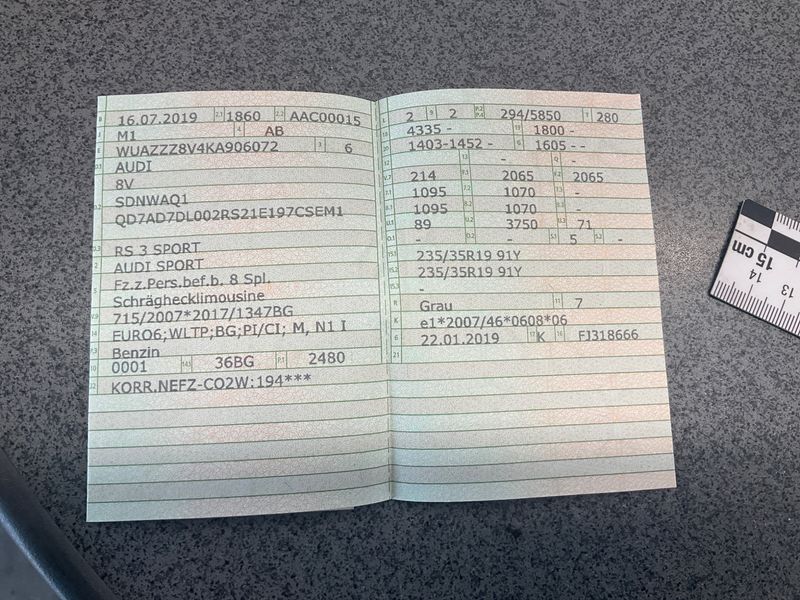 B 16.07.2019 2.1 1860 2.2 AAC00015
J M1 4 AB
E WUAZZZ8V4KA906072 3 6
D.1 AUDI
8V
D.2 SDNWAQ1
QD7AD7DL002RS21E197CSEM1
D.3 RS 3 SPORT
2 AUDI SPORT
5 Fz.z.Pers.bef.b. 8 Spl.
Schräghecklimousine
V.9 715/2007*2017/1347BG
14 EURO6;WLTP;BG;PI/CI; M, N1 I
P.3 Benzin
10 0001 14.1 36BG P.1 2480
22 KORR.NEFZ-CO2W:194***
L 2 9 2 P.2 P.4 294/5850 T 280
18 4335 - 19 1800 -
20 1403-1452 - G 1605 - -
12 - 13 - Q -
V.7 214 F.1 2065 F.2 2065
7.1 1095 7.2 1070 7.3 -
8.1 1095 8.2 1070 8.3 -
U.1 89 U.2 3750 U.3 71
O.1 - O.2 - S.1 5 S.2 -
15.1 235/35R19 91Y
15.2 235/35R19 91Y
15.3 -
R Grau 11 7
K e1*2007/46*0608*06
6 22.01.2019 17 K 16 FJ318666
21
15 cm
14
13